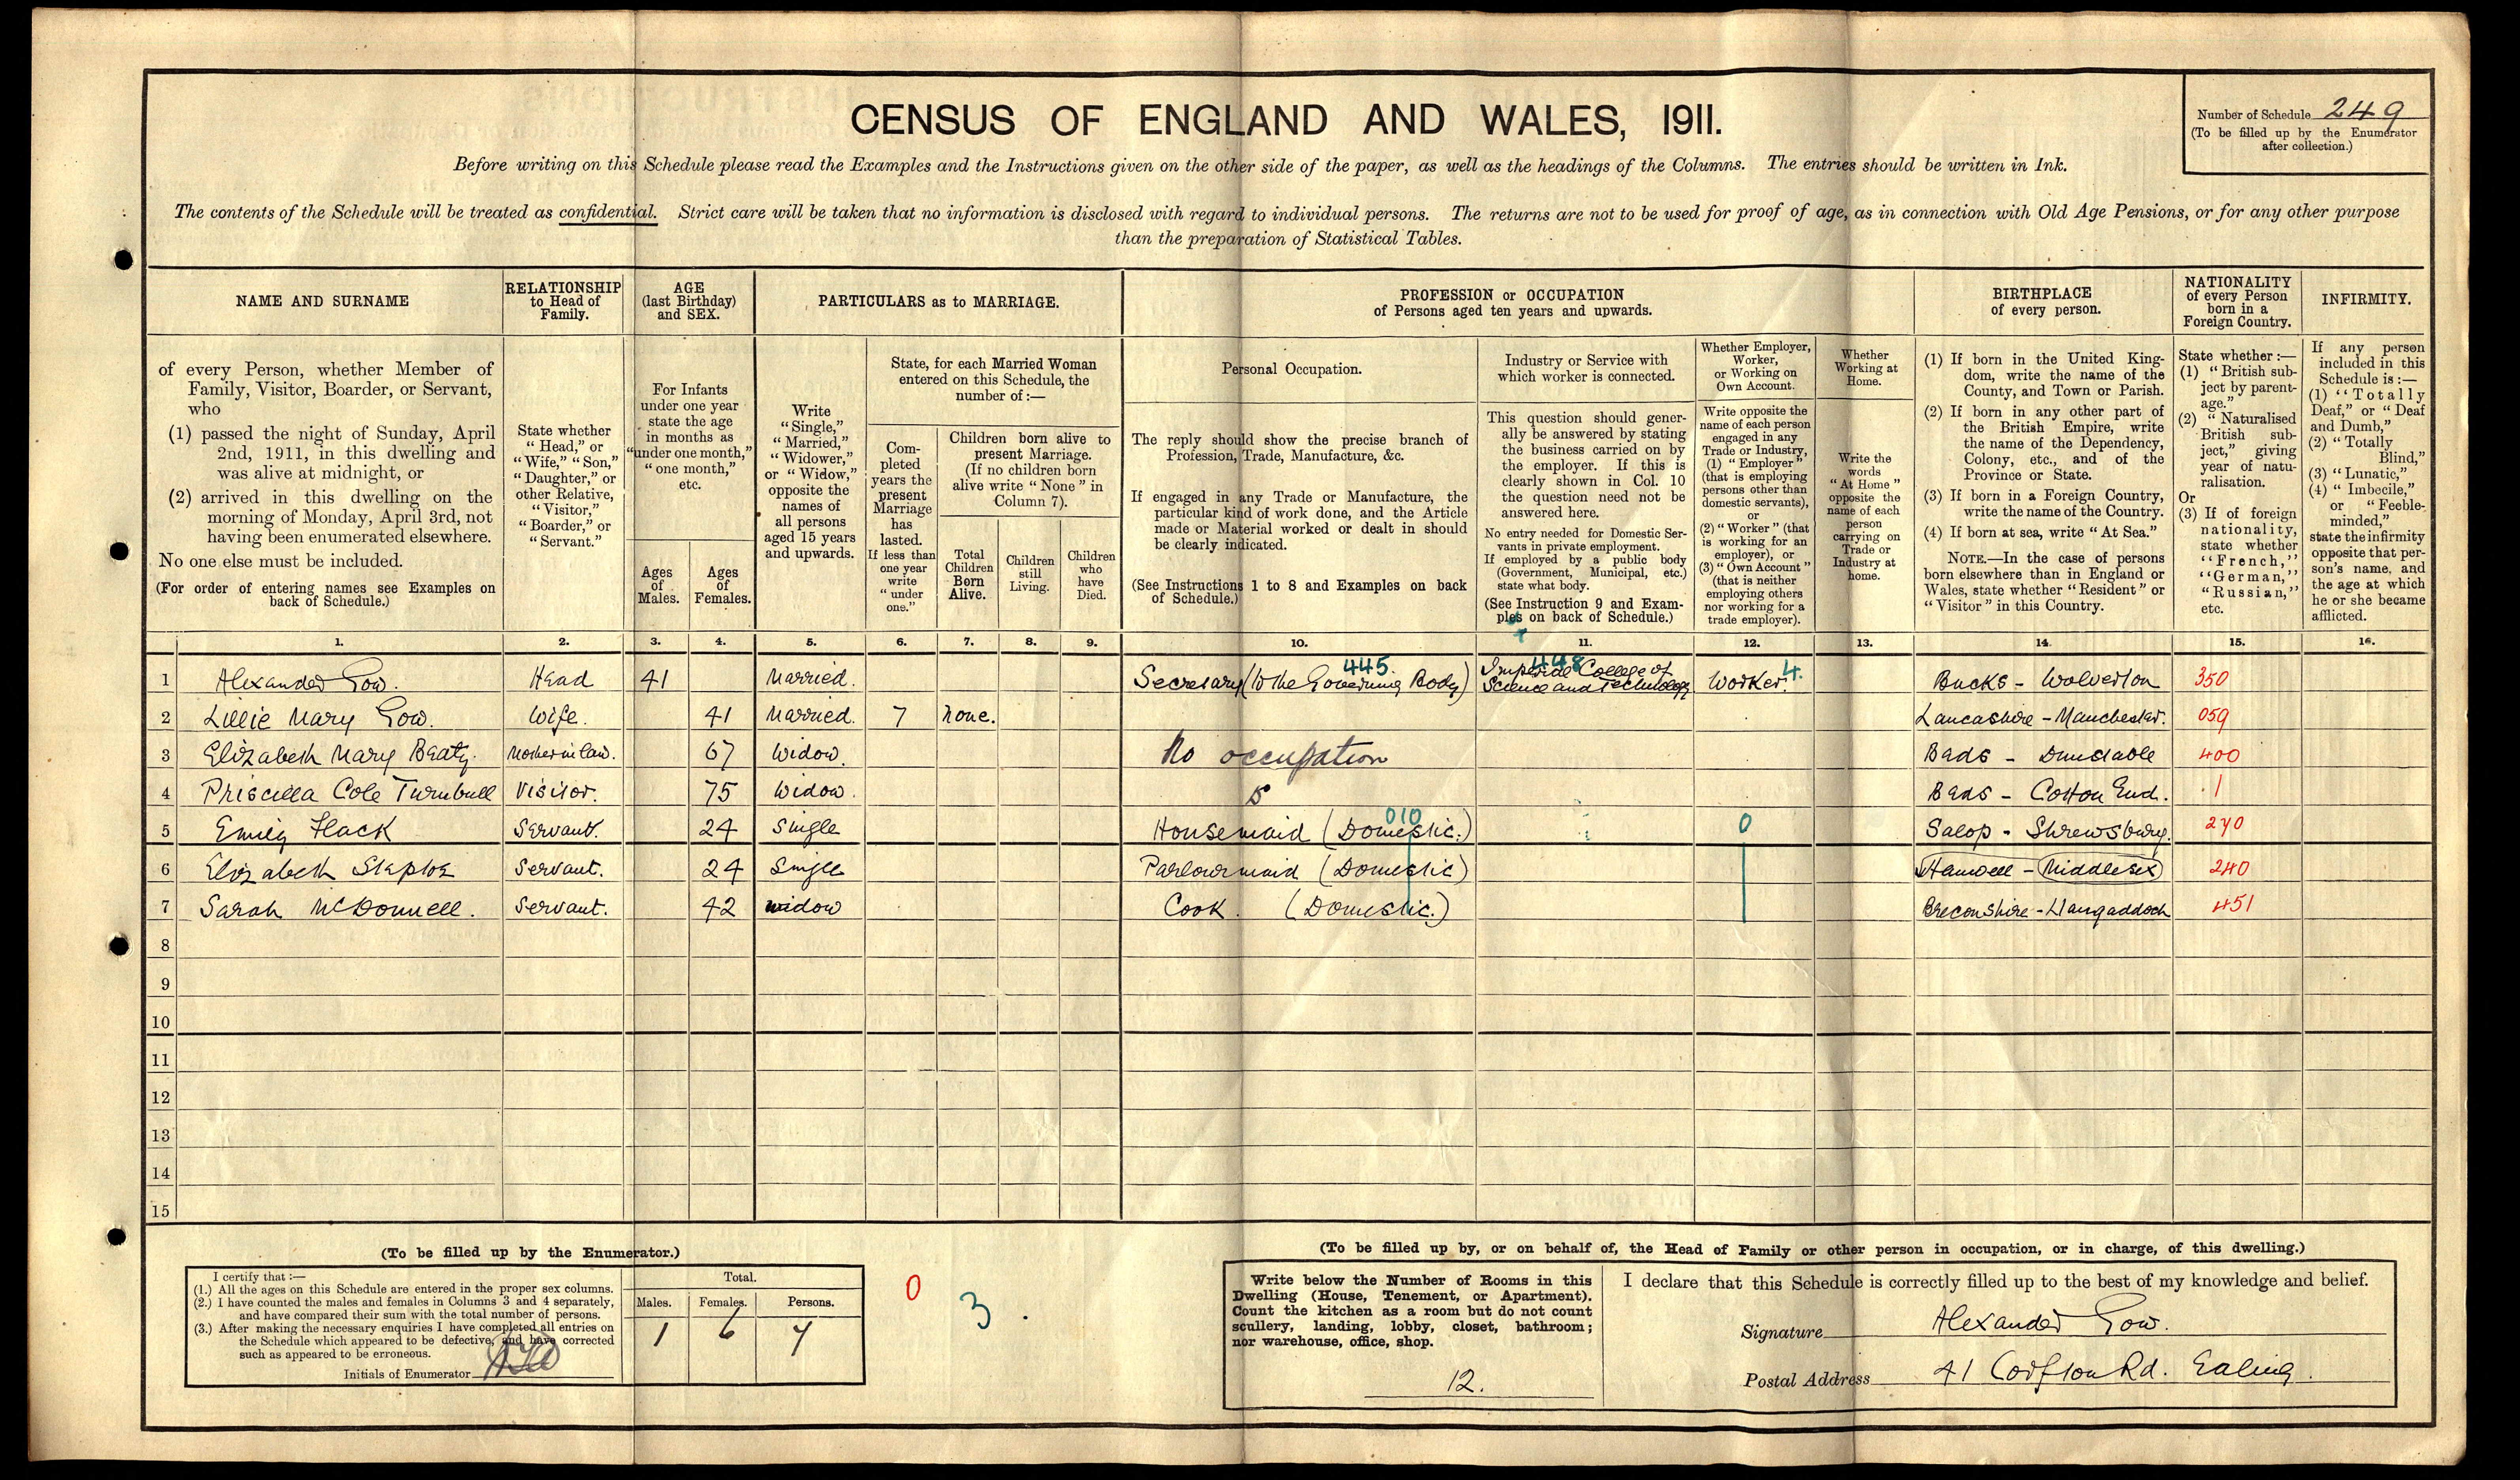 CENSUS OF ENGLAND AND WALES, 1911.
Number of Schedule 249
(To be filled up by the Enumerator
after collection.)
Before writing on this Schedule please read the Examples and the Instructions given on the other side of the paper, as well as the headings of the Columns. The entries should be written in Ink.
The contents of the Schedule will be treated as confidential. Strict care will be taken that no information is disclosed with regard to individual persons. The returns are not to be used for proof of age, as in connection with Old Age Pensions, or for any other purpose
than the preparation of Statistical Tables.
NAME AND SURNAME
of every Person, whether Member of
Family, Visitor, Boarder, or Servant,
who
(1) passed the night of Sunday, April
2nd, 1911, in this dwelling and
was alive at midnight, or
(2) arrived in this dwelling on the
morning of Monday, April 3rd, not
having been enumerated elsewhere.
No one else must be included.
(For order of entering names see Examples on
back of Schedule.)
RELATIONSHIP
to Head of
Family.
State whether
"Head," or
"Wife," "Son,"
"Daughter," or
other Relative,
"Visitor,"
"Boarder," or
"Servant."
AGE
(last Birthday)
and SEX.
For Infants
under one year
state the age
in months as
"under one month,"
"one month,"
etc.
Ages
of
Males.
Ages
of
Females.
PARTICULARS as to MARRIAGE.
Write
"Single,"
"Married,"
"Widower,"
or "Widow,"
opposite the
names of
all persons
aged 15 years
and upwards.
State, for each Married Woman
entered on this Schedule, the
number of:—
Com-
pleted
years the
present
Marriage
has
lasted.
If less than
one year
write
"under
one."
Children born alive to
present Marriage.
(If no children born
alive write "None" in
Column 7).
Total
Children
Born
Alive.
Children
still
Living.
Children
who
have
Died.
PROFESSION or OCCUPATION
of Persons aged ten years and upwards.
Personal Occupation.
The reply should show the precise branch of
Profession, Trade, Manufacture, &c.
If engaged in any Trade or Manufacture, the
particular kind of work done, and the Article
made or Material worked or dealt in should
be clearly indicated.
(See Instructions 1 to 8 and Examples on back
of Schedule.)
Industry or Service with
which worker is connected.
This question should gener-
ally be answered by stating
the business carried on by
the employer. If this is
clearly shown in Col. 10
the question need not be
answered here.
No entry needed for Domestic Ser-
vants in private employment.
If employed by a public body
(Government, Municipal, etc.)
state what body.
(See Instruction 9 and Exam-
ples on back of Schedule.)
Whether Employer,
Worker,
or Working on
Own Account.
Write opposite the
name of each person
engaged in any
Trade or Industry,
(1) "Employer"
(that is employing
persons other than
domestic servants),
or
(2) "Worker" (that
is working for an
employer), or
(3) "Own Account"
(that is neither
employing others
nor working for a
trade employer).
Whether
Working at
Home.
Write the
words
"At Home"
opposite the
name of each
person
carrying on
Trade or
Industry at
home.
BIRTHPLACE
of every person.
(1) If born in the United King-
dom, write the name of the
County, and Town or Parish.
(2) If born in any other part of
the British Empire, write
the name of the Dependency,
Colony, etc., and of the
Province or State.
(3) If born in a Foreign Country,
write the name of the Country.
(4) If born at sea, write "At Sea."
NOTE.—In the case of persons
born elsewhere than in England or
Wales, state whether "Resident" or
"Visitor" in this Country.
NATIONALITY
of every Person
born in a
Foreign Country.
State whether :—
(1) "British sub-
ject by parent-
age."
(2) "Naturalised
British sub-
ject," giving
year of natu-
ralisation.
Or
(3) If of foreign
nationality,
state whether
"French,"
"German,"
"Russian,"
etc.
INFIRMITY.
If any person
included in this
Schedule is :—
(1) "Totally
Deaf," or "Deaf
and Dumb,"
(2) "Totally
Blind,"
(3) "Lunatic,"
(4) "Imbecile,"
or "Feeble-
minded,"
state the infirmity
opposite that per-
son's name, and
the age at which
he or she became
afflicted.
1. 2. 3. 4. 5. 6. 7. 8. 9. 10. 11. 12. 13. 14. 15. 16.
445 448 4
1 Alexander Gow. Head 41 Married. Secretary (to the Governing Body) Imperial College of Science and Technology Worker. Bucks - Wolverton 350
2 Lillie Mary Gow. Wife. 41 Married. 7 None. Lancashire - Manchester. 059
3 Elizabeth Mary Beaty. Mother in law. 67 Widow. No occupation Beds - Dunstable 400
4 Priscilla Cole Turnbull Visitor. 75 Widow. Beds - Cotton End. 1
010
5 Emily Flack Servant. 24 Single Housemaid (Domestic.) 0 Salop - Shrewsbury. 270
6 Elizabeth Servant. 24 Single Parlourmaid (Domestic) Hanwell - Middlesex 240
7 Sarah McDonnell. Servant. 42 Widow Cook. (Domestic.) Breconshire - Llangaddock 451
8
9
10
11
12
13
14
15
(To be filled up by the Enumerator.)
I certify that :—
(1.) All the ages on this Schedule are entered in the proper sex columns.
(2.) I have counted the males and females in Columns 3 and 4 separately,
and have compared their sum with the total number of persons.
(3.) After making the necessary enquiries I have completed all entries on
the Schedule which appeared to be defective, and have corrected
such as appeared to be erroneous.
Initials of Enumerator
Total.
Males. Females. Persons.
1 6 7
0
3.
(To be filled up by, or on behalf of, the Head of Family or other person in occupation, or in charge, of this dwelling.)
Write below the Number of Rooms in this
Dwelling (House, Tenement, or Apartment).
Count the kitchen as a room but do not count
scullery, landing, lobby, closet, bathroom;
nor warehouse, office, shop.
12.
I declare that this Schedule is correctly filled up to the best of my knowledge and belief.
Signature Alexander Gow.
Postal Address 41 Corfton Rd. Ealing.